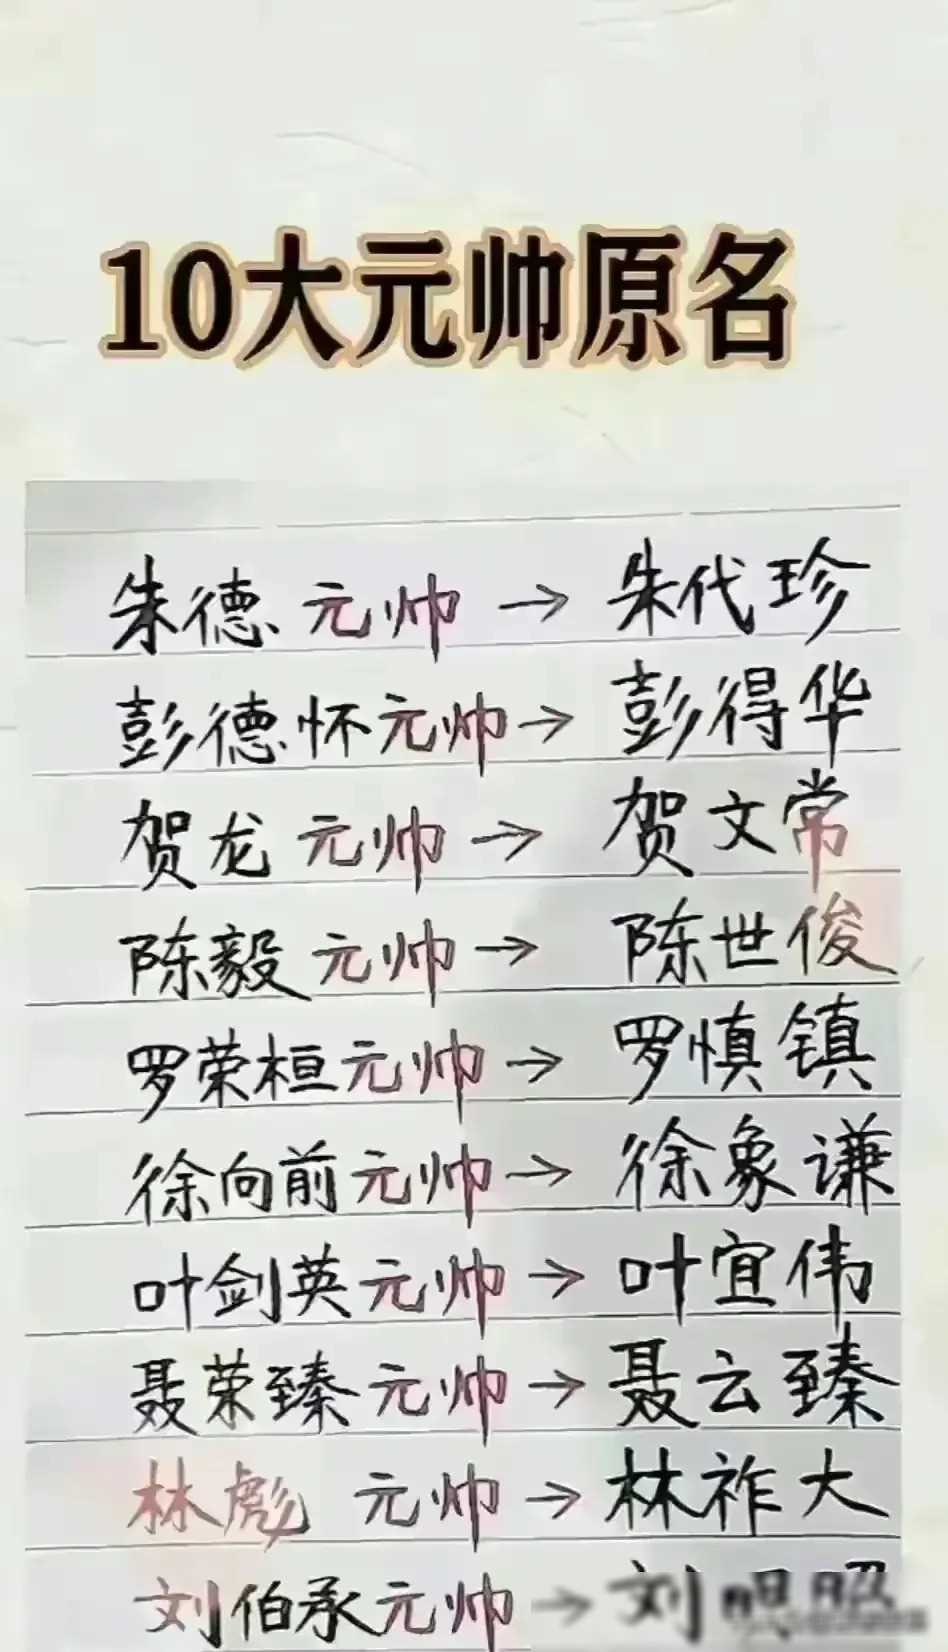 10大元帅原名
朱德元帅→朱代珍
彭德怀元帅→彭得华
贺龙元帅→贺文常
陈毅元帅→陈世俊
罗荣桓元帅→罗慎镇
徐向前元帅→徐象谦
叶剑英元帅→叶宜伟
聂荣臻元帅→聂云臻
林彪元帅→林祚大
刘伯承元帅→刘